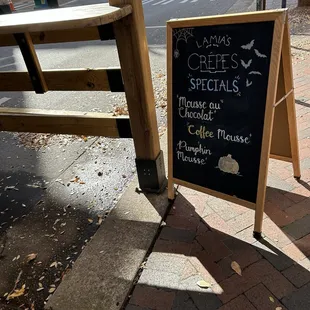 LAMIA'S
CRÊPES
SPECIALS
"Mousse au
Chocolat"
"Coffee Mousse"
"Pumpkin
Mousse"